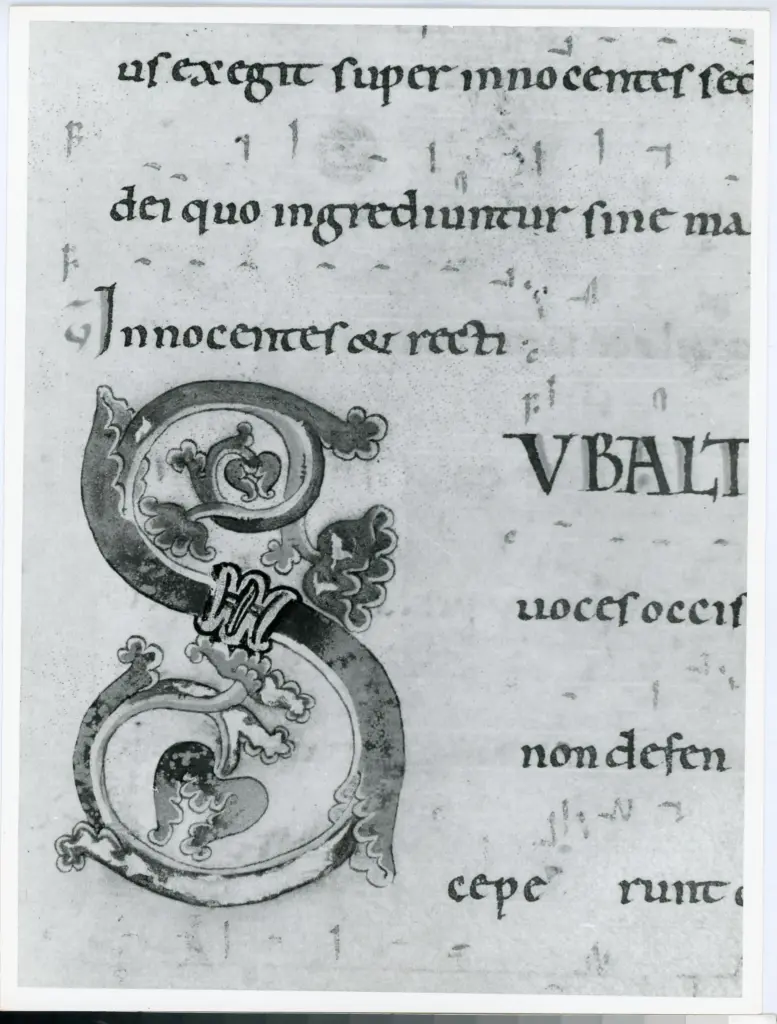 us exegit super innocentes sed
dei quo ingrediuntur sine ma
Innocentes & recti
SUBALT
uoces occis
non defen
cepe runt